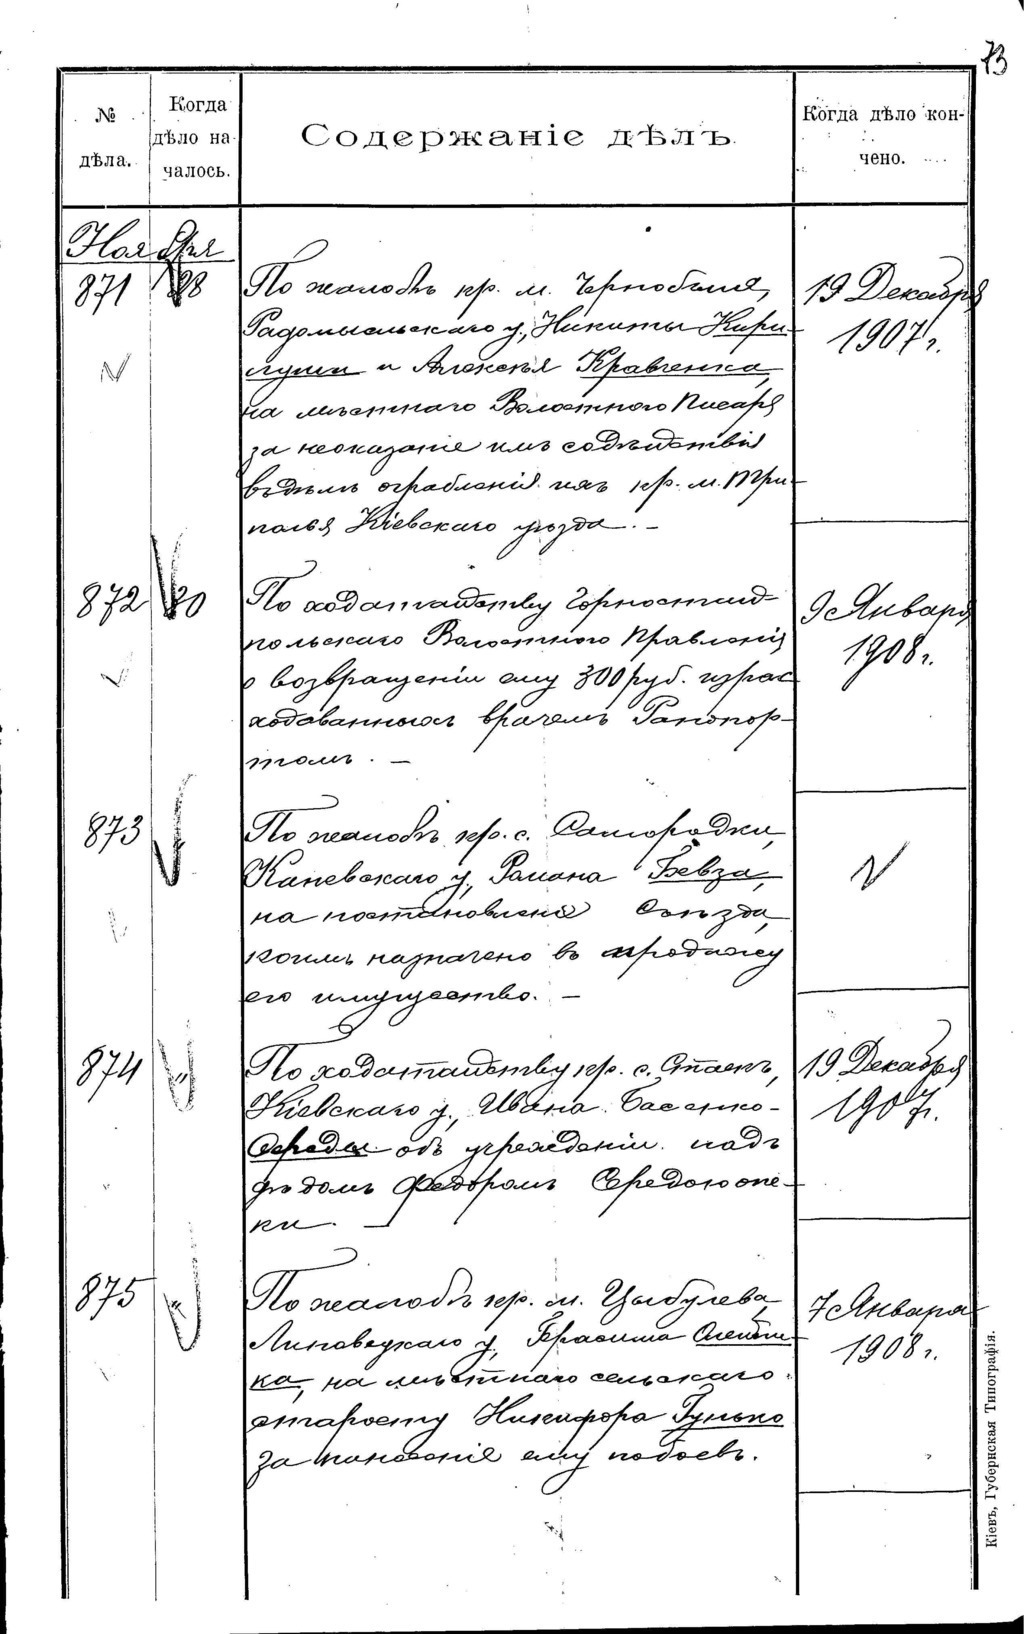 73
№ дѣла.
Когда дѣло началось.
Содержаніе дѣлъ.
Когда дѣло кончено.
Ноября
871 28
По жалобѣ кр. м. Чернобыля,
Радомысльскаго у., Никиты Кири-
лущи и Алексѣя Кравченка,
на мѣстнаго Волостного Писаря
за неоказаніе имъ содѣйствія
въ дѣлѣ ограбленія ихъ кр. м. Три-
полья Кіевскаго уѣзда. —
19 Декабря
1907 г.
872 30
По ходатайству Горностай-
польскаго Волостного Правленія
о возвращеніи ему 300 руб. израс-
ходованныхъ врачемъ Рапопор-
томъ. —
9 Января
1908 г.
873
По жалобѣ кр. с. Самородки,
Каневскаго у., Романа Бевза,
на постановленіе Съѣзда,
коимъ назначено въ продажу
его имущество. —
874
По ходатайству кр. с. Стаекъ,
Кіевскаго у., Ивана Басенко-
Середы объ учрежденіи надъ
дѣдомъ Федоромъ Середою опе-
ки. —
19 Декабря
1907 г.
875
По жалобѣ кр. м. Цыбулева,
Липовецкаго у., Герасима
на мѣстнаго сельскаго
старосту Никифора Гунько
за нанесеніе ему побоевъ.
7 Января
1908 г.
Кіевъ, Губернская Типографія.